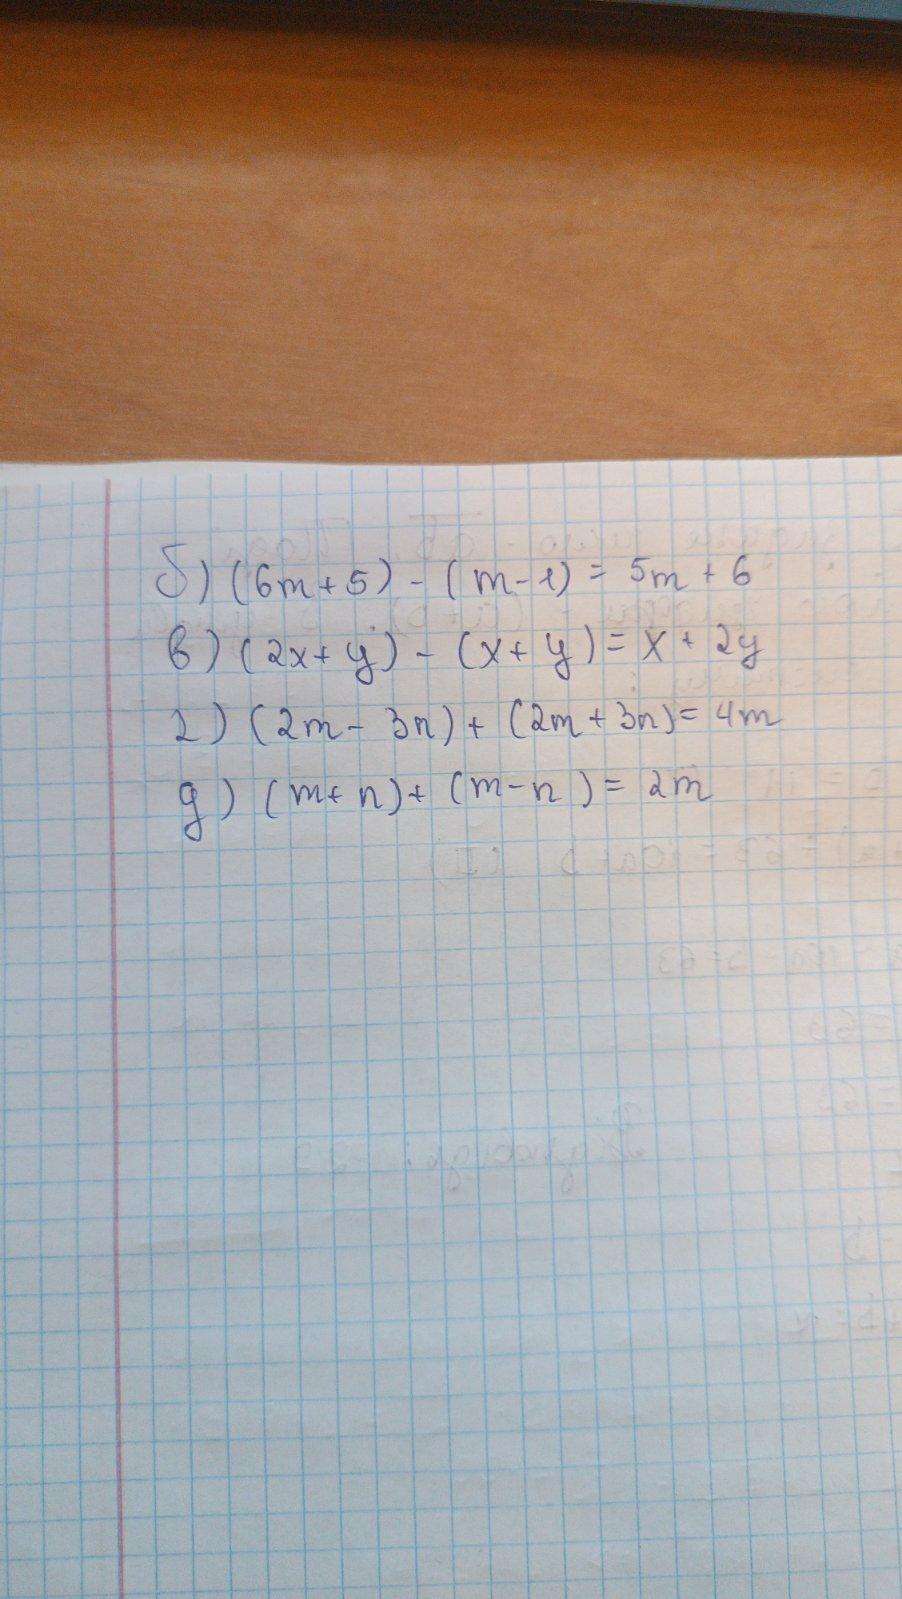 б) (6m+5) - (m-1) = 5m + 6
в) (2x+y) - (x+y) = x + 2y
г) (2m - 3n) + (2m+3n) = 4m
д) (m+n) + (m-n) = 2m